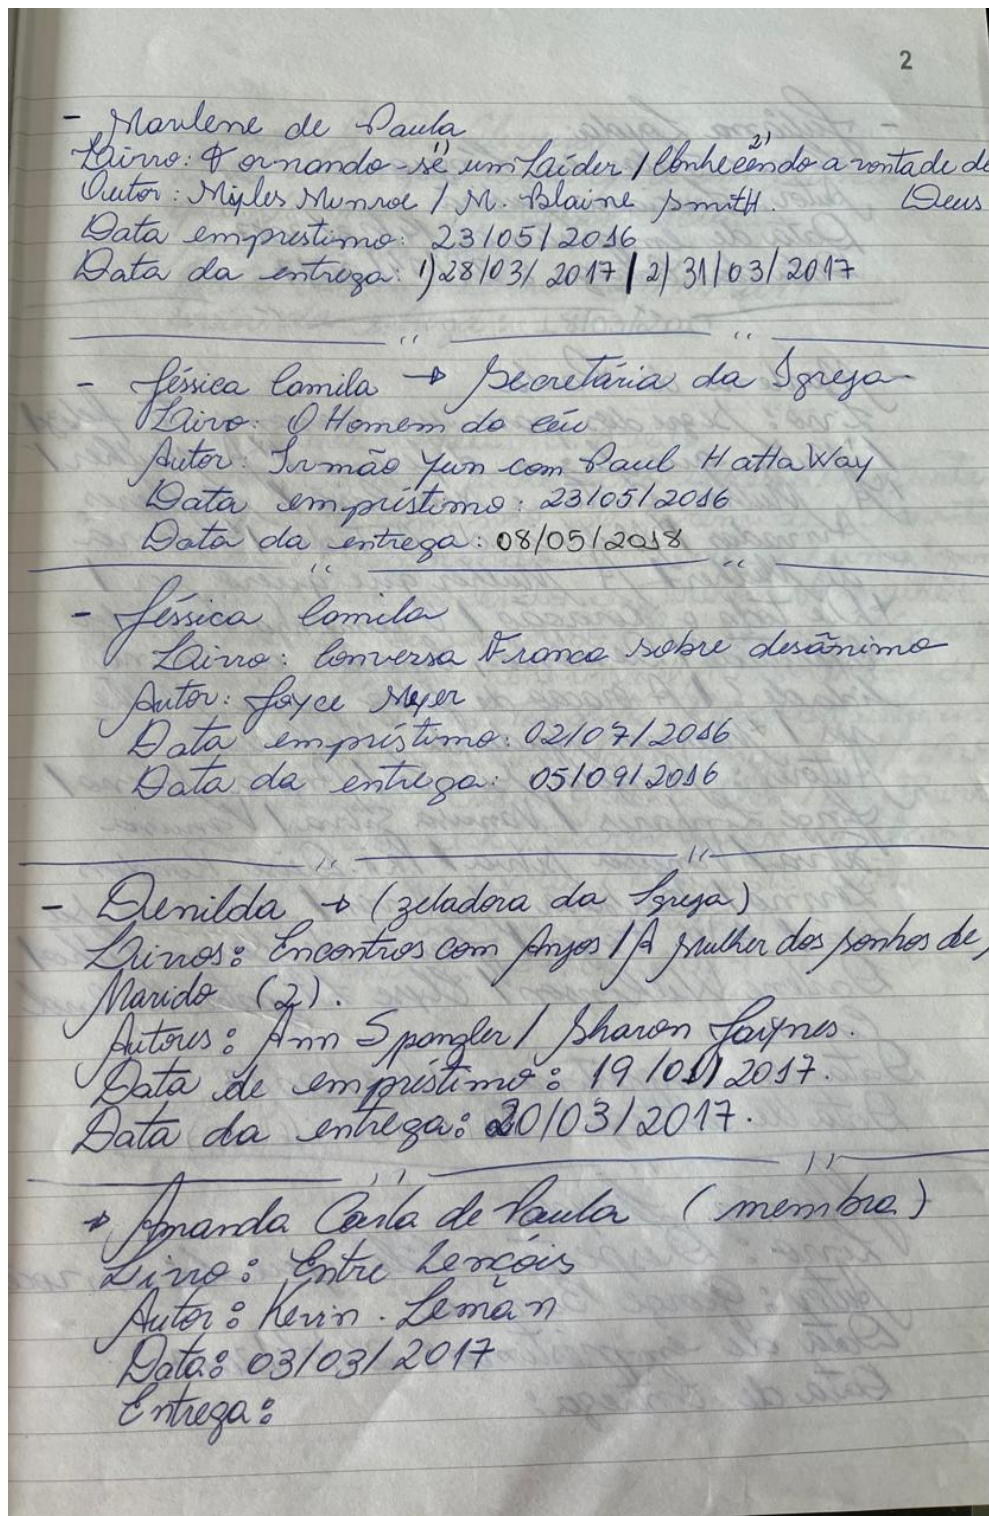 2
- Marlene de Paula
Livro: Tornando-se 1) um Líder / Conhecendo 2) a vontade de
Deus
Autor: Myles Munroe / M. Blaine Smith.
Data empréstimo: 23/05/2016
Data da entrega: 1) 28/03/2017 / 2) 31/03/2017
- Jéssica Camila → Secretária da Igreja
Livro: O Homem do céu
Autor: Irmão Yun com Paul HattaWay
Data empréstimo: 23/05/2016
Data da entrega: 08/05/2018
- Jéssica Camila
Livro: Conversa Franca sobre desânimo
Autor: Joyce Meyer
Data empréstimo: 02/07/2016
Data da entrega: 05/09/2016
- Denilda → (zeladora da Igreja)
Livros: Encontros com Anjos / A mulher dos sonhos de
Marido (2).
Autores: Ann Spangler / Sharon Jaynes.
Data de empréstimo: 19/01/2017.
Data da entrega: 20/03/2017.
→ Amanda Carla de Paula (membra)
Livro: Entre Lençóis
Autor: Kevin. Leman
Data: 03/03/2017
Entrega: